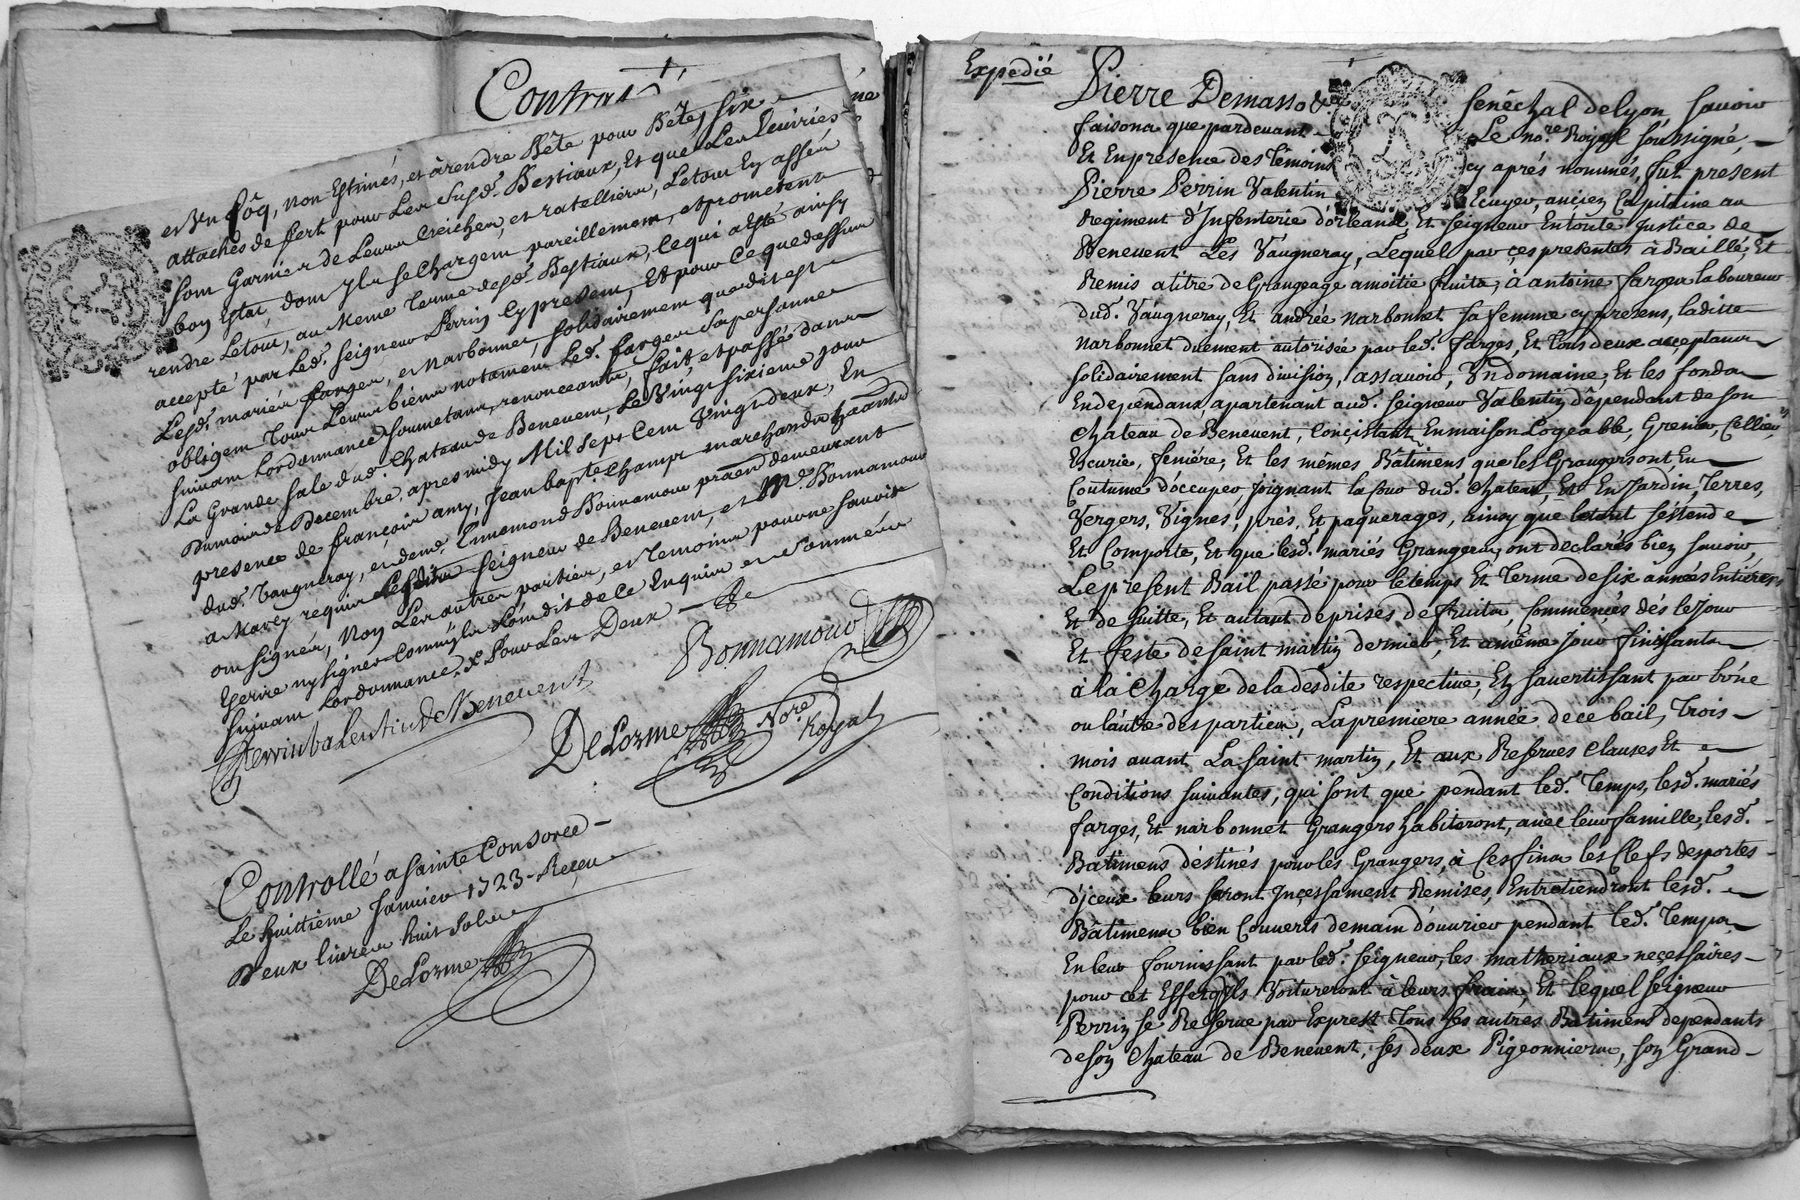 Contrat
et Un Coq, non Estimés, et à rendre Bête pour Bête, six
attachés de fert pour Les Susd. Bestiaux, Et que Les Ecuriës
sont Garnies de Leurs Creiches, et ratelliers, Letout En assés
bon Estat, dont yls se Chargent pareillement, et promettent
rendre Letout, au Meme Terme desd. Bestiaux, Ce qui a Esté ainsy
accepté par Led. Seigneur Perrin Cy present, Et pour Ce que dessus
Lesd. mariés farges, et Narbonnet, solidairement que dit est
obligent Tous Leurs biens notament Led. farges Sa personne
suivant Lordonnance, soumetans, renonceants, fait, et passé dans
La Grande sale dud. Chateau de Benevent, Le Vingt sixieme jour
Du mois de Decembre, apres midy Mil Sept Cent Vingt deux, En
presence de françois amy, Jean bapt.te Champt marchands
dud. Vaugneray, et de me. Ennemond Bonnamour demeurant
a Marcy requis Lesdits Seigneur de Benevent, et Me. Bonnamour
ont signés, Non Les autres parties, et Temoins pour ne savoir
Ecrire ny signer Comm'yls L'ont dit de ce Enquis et Sommés
suivant Lordonnance, Pour Les Deux
Perrin Valentin de Benevent
Bonnamour
DeLorme Nore.
Royal
Controllé a Sainte Consorce
Le huittiême Janvier 1723 - Reçeu
Deux livres huit sols
DeLorme
Expedié
Pierre Demasso Senêchal de Lyon, savoir
faisons que pardevant Le no.re Royal soussigné,
Et En presence des Témoins cy aprés nommés, fut present
Pierre Perrin Valentin Ecuyer, ancien Capitaine au
Regiment d'Infenterie d'orleans, Et Seigneur En toute Justice de
Benevent Les Vaugneray, Lequel par ces presentes à Baillé, Et
Remis a titre de Grangeage amoitié fruits, à antoine farges laboureur
dud. Vaugneray, Et andrée narbonnet sa femme cy presens, ladite
Narbonnet duement autorisée par led. farges, Et Tous deux acceptans
solidairement sans division, assavoir, Un domaine, Et les fonds
En dependans apartenant aud. Seigneur Valentin dépendant de son
Chateau de Benevent, Concistant En maison Logeable, Grenier, Cellier,
Escurie, feniére, Et les mêmes Bâtimens que les Grangers ont Eu
Coutume d'occuper, joignant la Cour dud. Chateau, Et En Jardin, Terres,
Vergers, Vignes, prés, Et paquerages, ainsy que letout s'éstend
Et Comporte, Et que lesd. mariés Grangers ont declarés bien savoir,
Le present Bail passé pour le temps Et Terme de six années Entieres
Et de suitte, Et autant de prises de fruits, Commencées dés le Jour
Et feste de saint martin dernier, Et a même jour finissants
à la Charge de la desdite respective, En s'avertissant par l'une
ou l'autre des parties, La premiere année de ce bail, Trois
mois avant La saint martin, Et aux Reserves Clauses Et
Conditions suivantes, qui sont que pendant led. Temps, lesd. mariés
farges, Et narbonnet Grangers habiteront, avec leur famille, lesd.
Batimens déstinés pour les Grangers, à Ces fins les Clefs des portes
d'yceux leurs seront Inçessament Remises, Entretiendront lesd.
Bâtimens bien Couverts de main d'ouvrier pendant led. Temps
En leur fournissant par led. Seigneur, les matheriaux neçessaires
pour cet Effet qu'yls Voitureront à leurs frais, Et lequel Seigneur
Perrin se Reserve par Exprest Tous ses autres Batimens dependants
de son Chateau de Benevent, ses deux Pigeonniers, son Grand